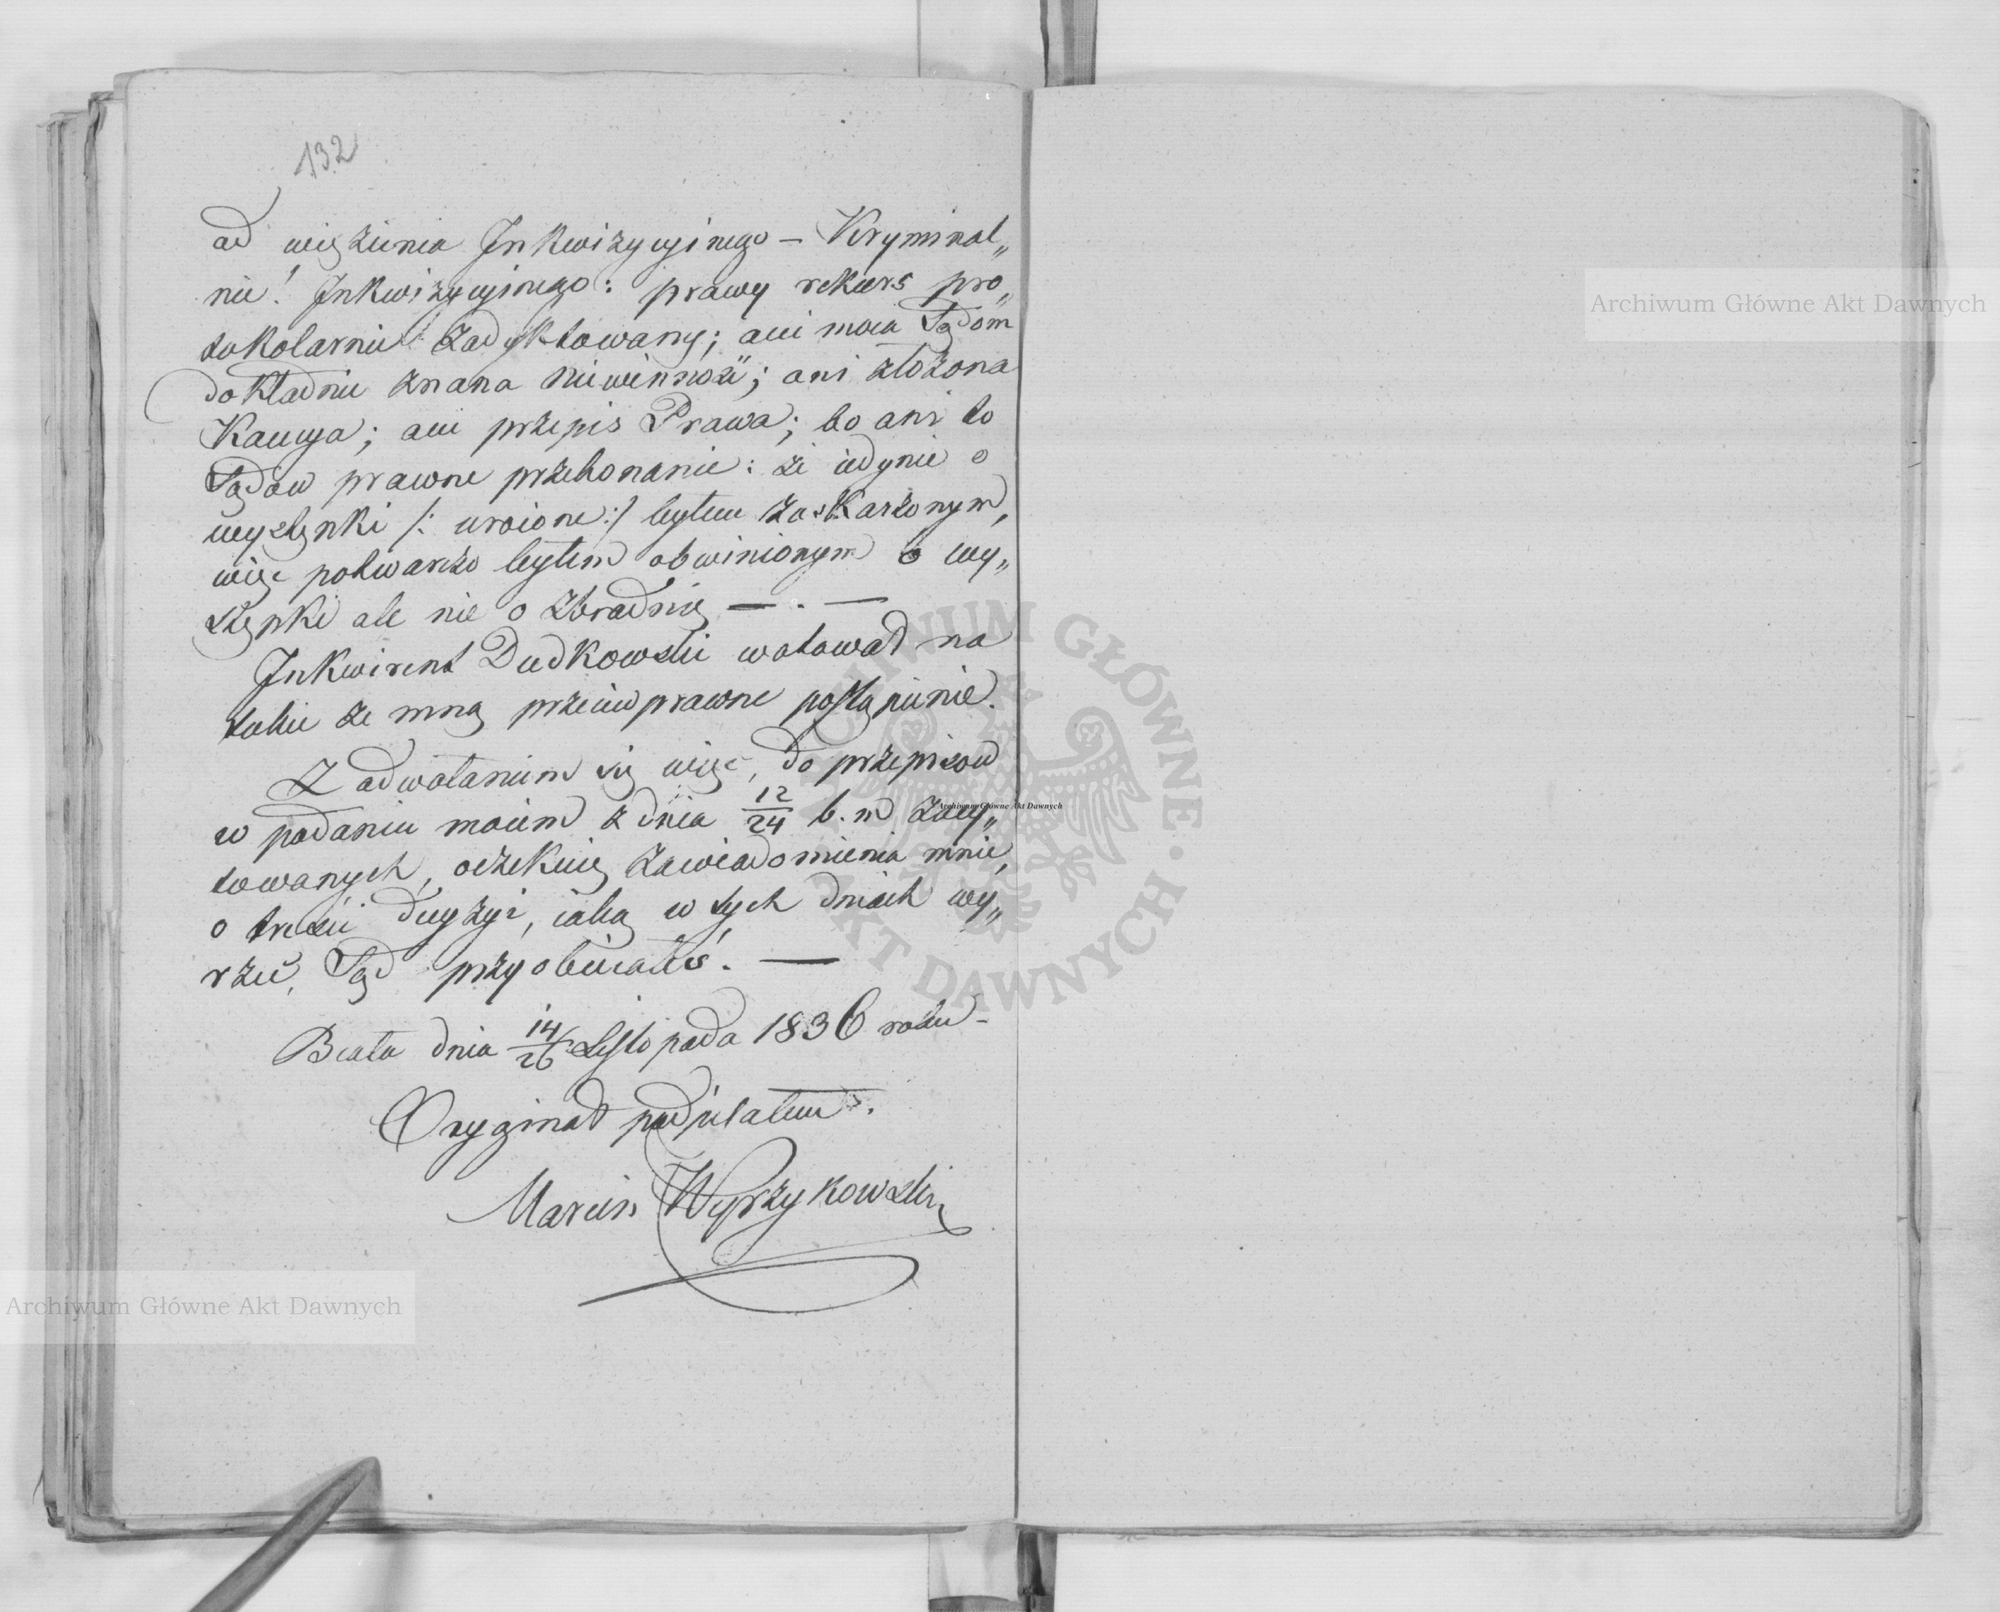 132
od więzienia Inkwizycyinego – Kryminal„
nie! Inkwizycyinego: prawy rekurs pro„
tokolarnie zadyktowany; ani moia Sądom
dokładnie znana niewinność; ani złożona
Kaucya; ani przepis Prawa; bo ani to
Sądów prawne przekonanie: że iedynie o
występki /: uroione :/ byłem zaskarżonym,
więc potwarzo byłem obwinionym o wy„
stępki ale nie o zbrodnię — . —
Inkwirent Dudkowski wotował na
takie ze mną przeciwprawne postąpienie.
Z odwołaniem się więc, do przepisow
w podaniu moiem z dnia 12/24 b. m zacy„
towanych, oczekuię zawiadomienia mnie,
o treści decyzyi, iaką w tych dniach wy„
rzec, Sąd przyobiecałeś. —
Biała dnia 14/26 Listopada 1836 roku –
Oryginał podpisałem.
Marcin Wyrzykowski
Archiwum Główne Akt Dawnych
Archiwum Główne Akt Dawnych
Archiwum Główne Akt Dawnych
ARCHIWUM GŁÓWNE · AKT DAWNYCH ·